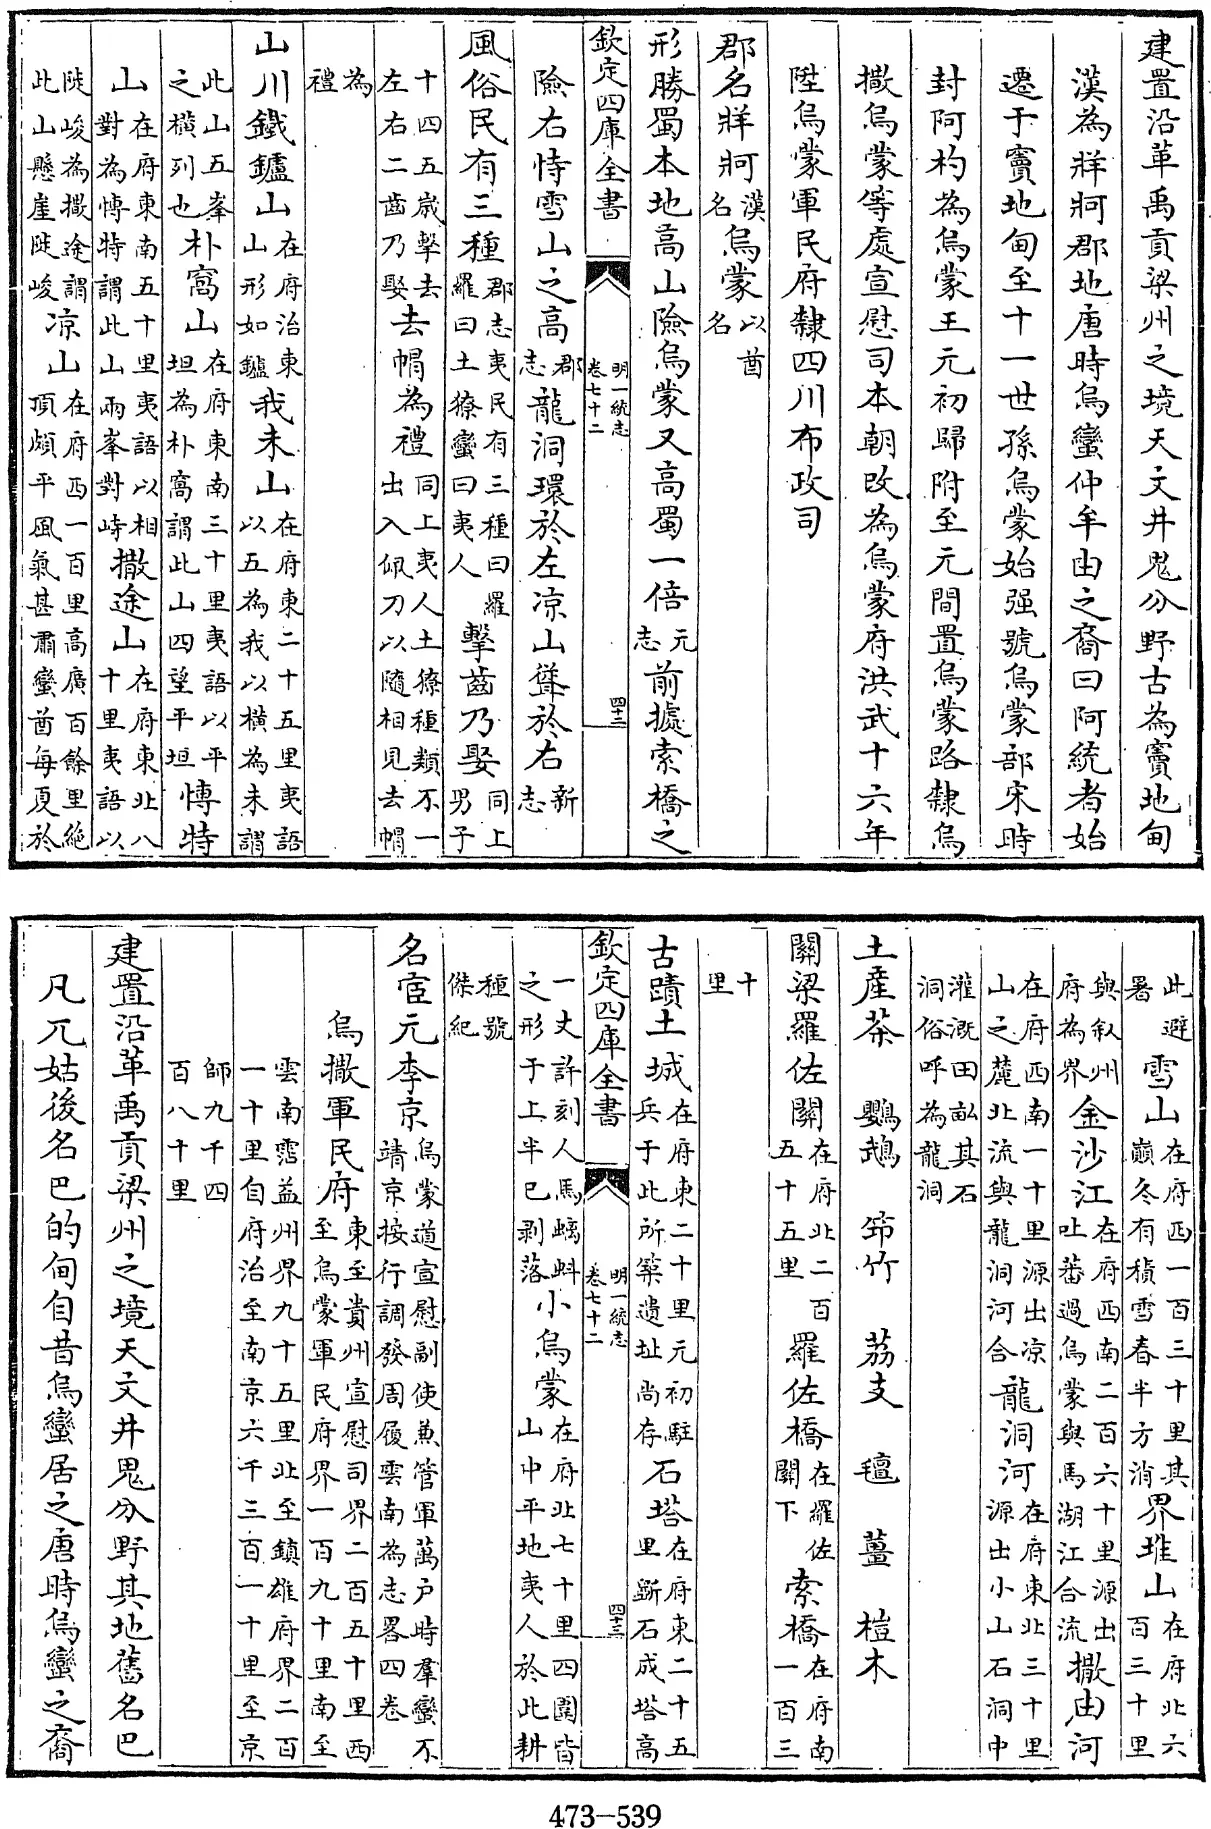 建置沿革禹貢梁州之境天文井鬼分野古為竇地甸
漢為牂牁郡地唐時烏蠻仲牟由之裔曰阿統者始
遷于竇地甸至十一世孫烏蒙始强號烏蒙部宋時
封阿杓為烏蒙王元初歸附至元間置烏蒙路隸烏
撒烏蒙等處宣慰司本朝改為烏蒙府洪武十六年
陞烏蒙軍民府隸四川布政司
郡名牂牁漢名烏蒙以酋名
形勝蜀本地高山險烏蒙又高蜀一倍元志前據索橋之
欽定四庫全書 明一統志卷七十二 四十二
險右恃雪山之高郡志龍洞環於左凉山聳於右新志
風俗民有三種郡志夷民有三種曰羅羅曰土獠蠻曰夷人擊齒乃娶同上男子
十四五歲擊去左右二齒乃娶去帽為禮同上夷人土獠種類不一出入佩刀以隨相見去帽
為禮
山川鐵鑪山在府治東山形如鑪我未山在府東二十五里夷語以五為我以橫為未謂
此山五峯之橫列也朴窩山在府東南三十里夷語以平坦為朴窩謂此山四望平坦博特
山在府東南五十里夷語以相對為博特謂此山兩峯對峙撒途山在府東北八十里夷語以
陡峻為撒途謂此山懸崖陡峻凉山在府西一百里高廣百餘里絶頂頗平風氣甚肅蠻酋每夏於
此避暑雪山在府西一百三十里其巔冬有積雪春半方消界堆山在府北六百三十里
與叙州府為界金沙江在府西南二百六十里源出吐蕃過烏蒙與馬湖江合流撒由河
在府西南一十里源出凉山之麓北流與龍洞河合龍洞河在府東北三十里源出小山石洞中
灌溉田畝其石洞俗呼為龍洞
土產茶 鸚鵡 筇竹 荔支 氊 薑 榿木
關梁羅佐關在府北二百五十五里羅佐橋在羅佐關下索橋在府南一百三
十里
古蹟土城在府東二十里元初駐兵于此所築遺址尚存石塔在府東二十五里斲石成塔高
欽定四庫全書 明一統志卷七十二 四十三
一丈許刻人馬蝌蚪之形于上半已剥落小烏蒙在府北七十里四圍皆山中平地夷人於此耕
種號傑紀
名宦元李京烏蒙道宣慰副使兼管軍萬户時羣蠻不靖京按行調發周履雲南為志畧四卷
烏撒軍民府東至貴州宣慰司界二百五十里西至烏蒙軍民府界一百九十里南至
雲南霑益州界九十五里北至鎮雄府界二百一十里自府治至南京六千三百一十里至京
師九千四百八十里
建置沿革禹貢梁州之境天文井鬼分野其地舊名巴
凡兀姑後名巴的甸自昔烏蠻居之唐時烏蠻之裔
473-539